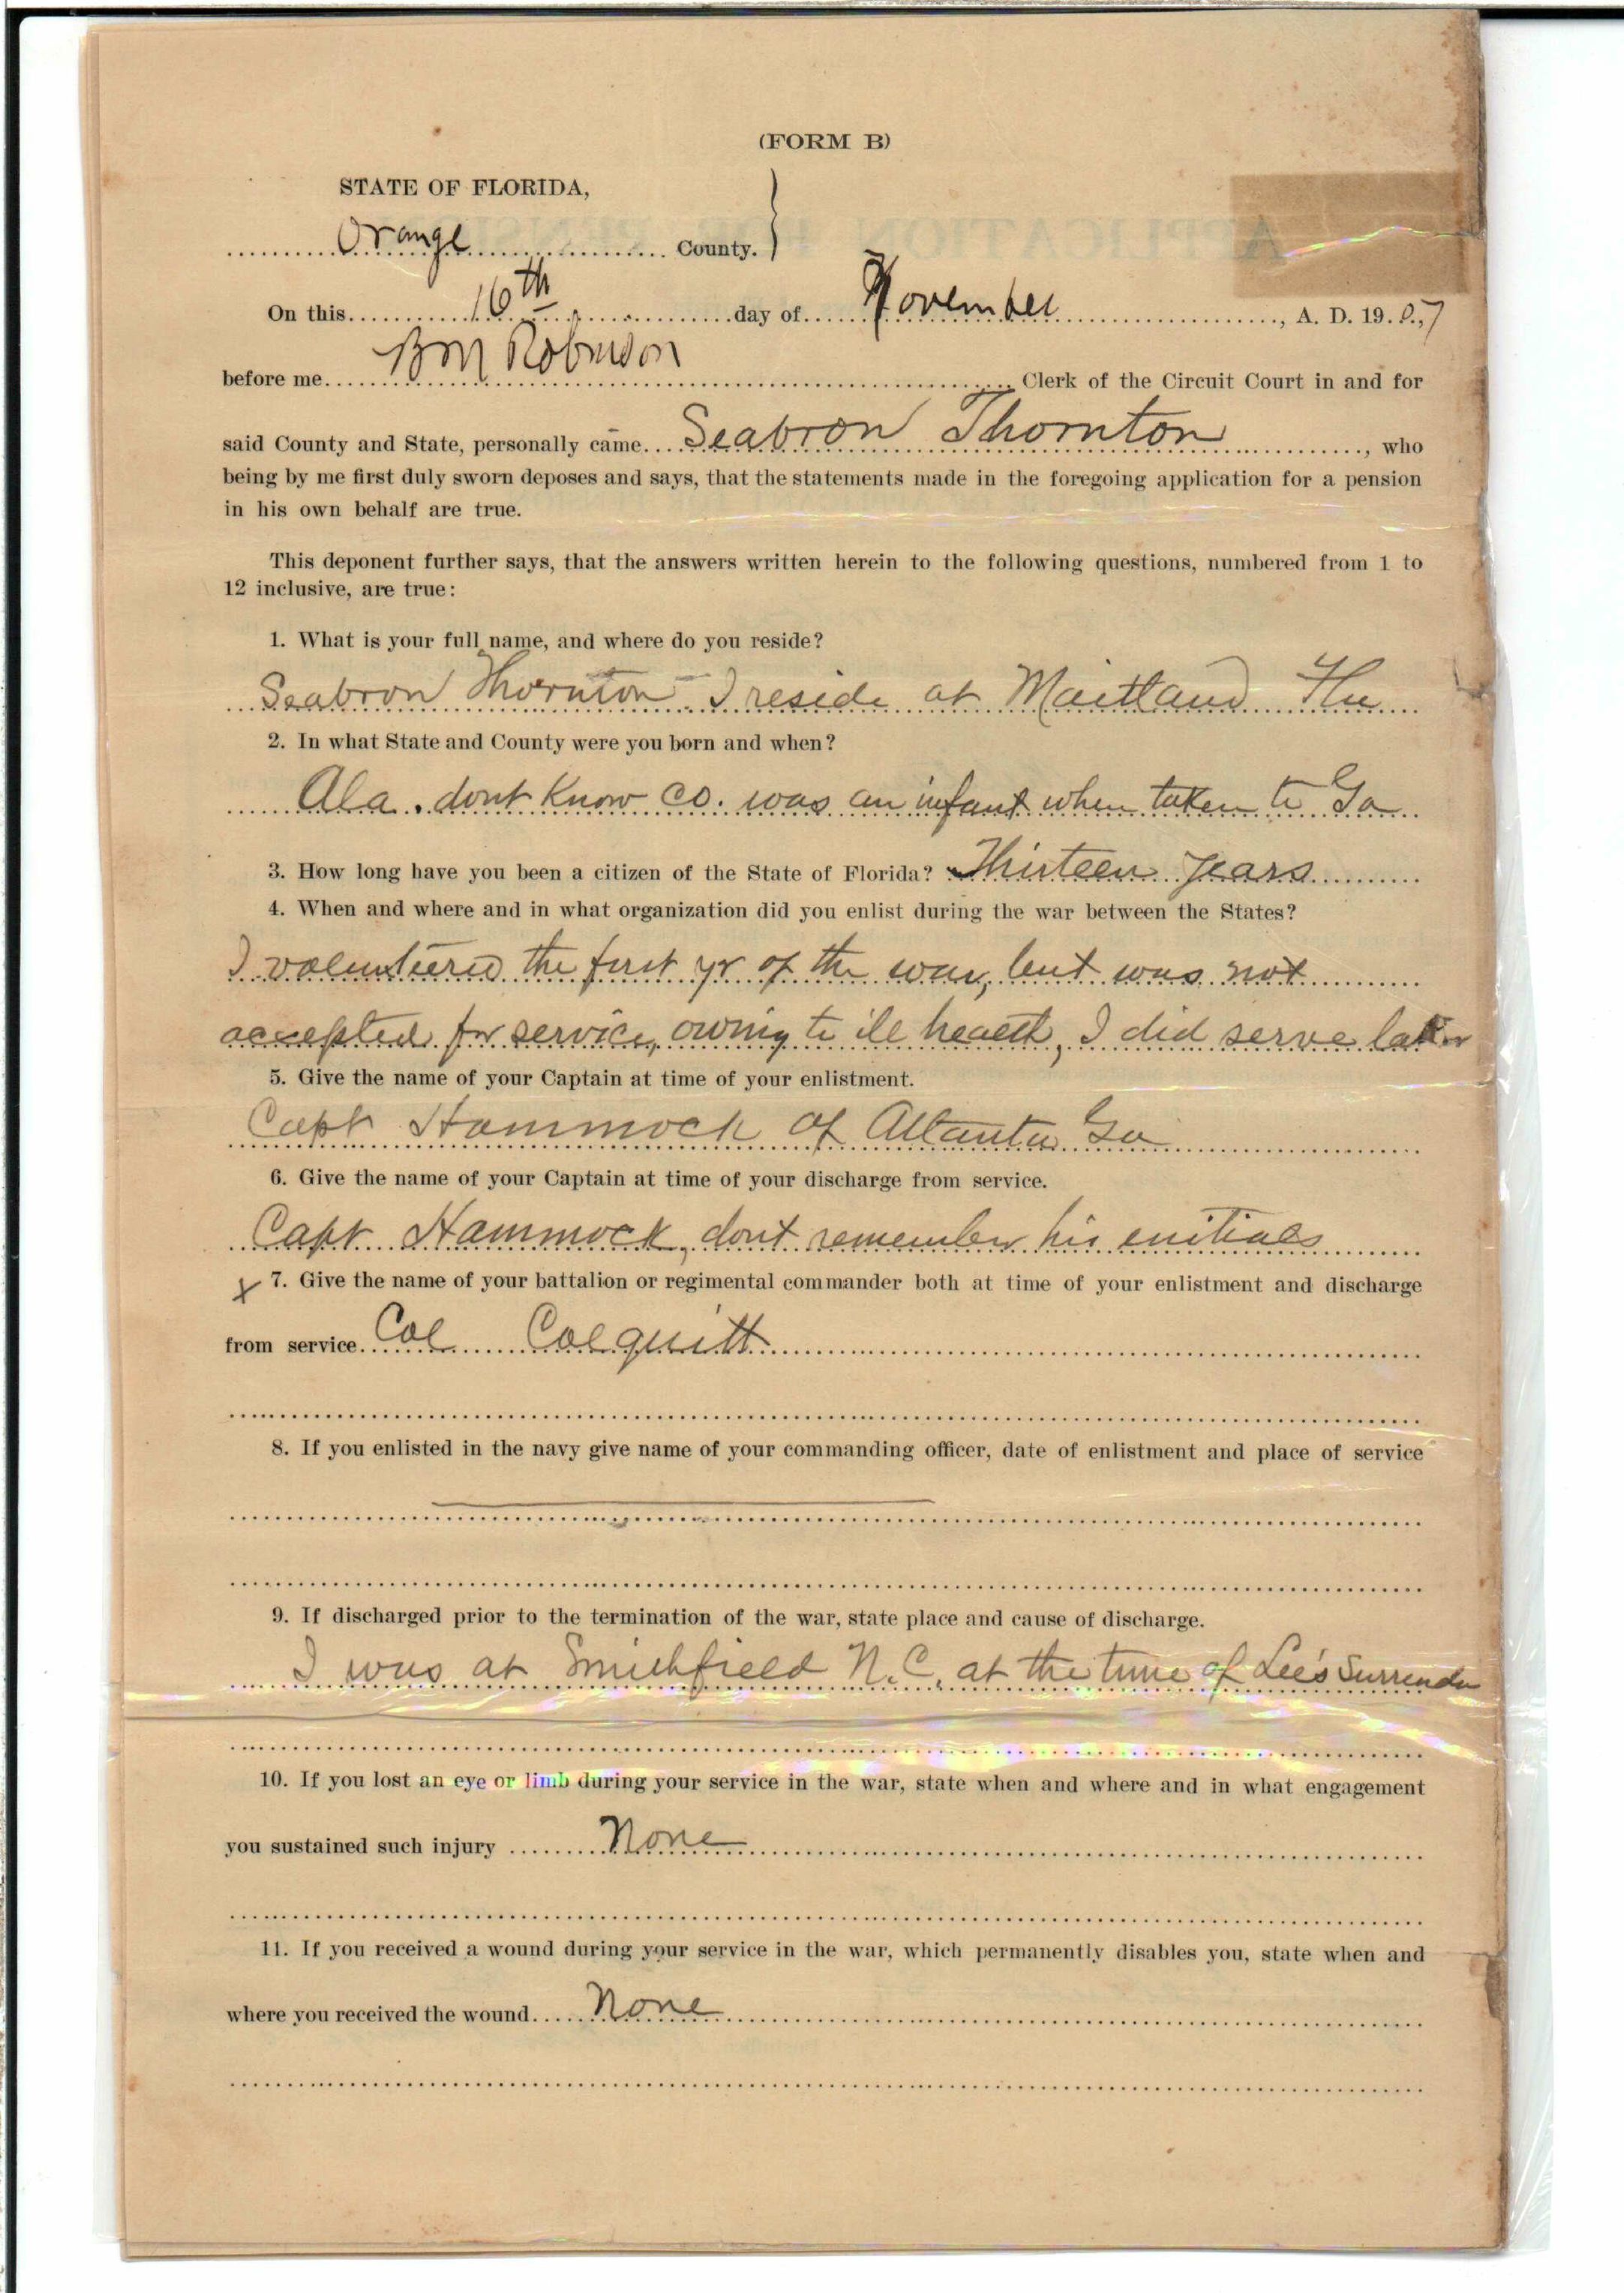 (FORM B)
STATE OF FLORIDA,
Orange County.
On this 16th day of November, A. D. 1907
before me B M Robinson Clerk of the Circuit Court in and for
said County and State, personally came Seabron Thornton, who
being by me first duly sworn deposes and says, that the statements made in the foregoing application for a pension
in his own behalf are true.
This deponent further says, that the answers written herein to the following questions, numbered from 1 to
12 inclusive, are true:
1. What is your full name, and where do you reside?
Seabron Thornton - I reside at Maitland Fla
2. In what State and County were you born and when?
Ala. dont know co. was an infant when taken to Ga
3. How long have you been a citizen of the State of Florida? Thirteen years
4. When and where and in what organization did you enlist during the war between the States?
I volunteered the first yr of the war, but was not
accepted for service, owing to ill health, I did serve later
5. Give the name of your Captain at time of your enlistment.
Capt Hammock of Atlanta Ga
6. Give the name of your Captain at time of your discharge from service.
Capt Hammock, dont remember his enitials
x 7. Give the name of your battalion or regimental commander both at time of your enlistment and discharge
from service Col Colquitt
8. If you enlisted in the navy give name of your commanding officer, date of enlistment and place of service
9. If discharged prior to the termination of the war, state place and cause of discharge.
I was at Smithfield N.C. at the time of Lee's Surrender
10. If you lost an eye or limb during your service in the war, state when and where and in what engagement
you sustained such injury None
11. If you received a wound during your service in the war, which permanently disables you, state when and
where you received the wound None